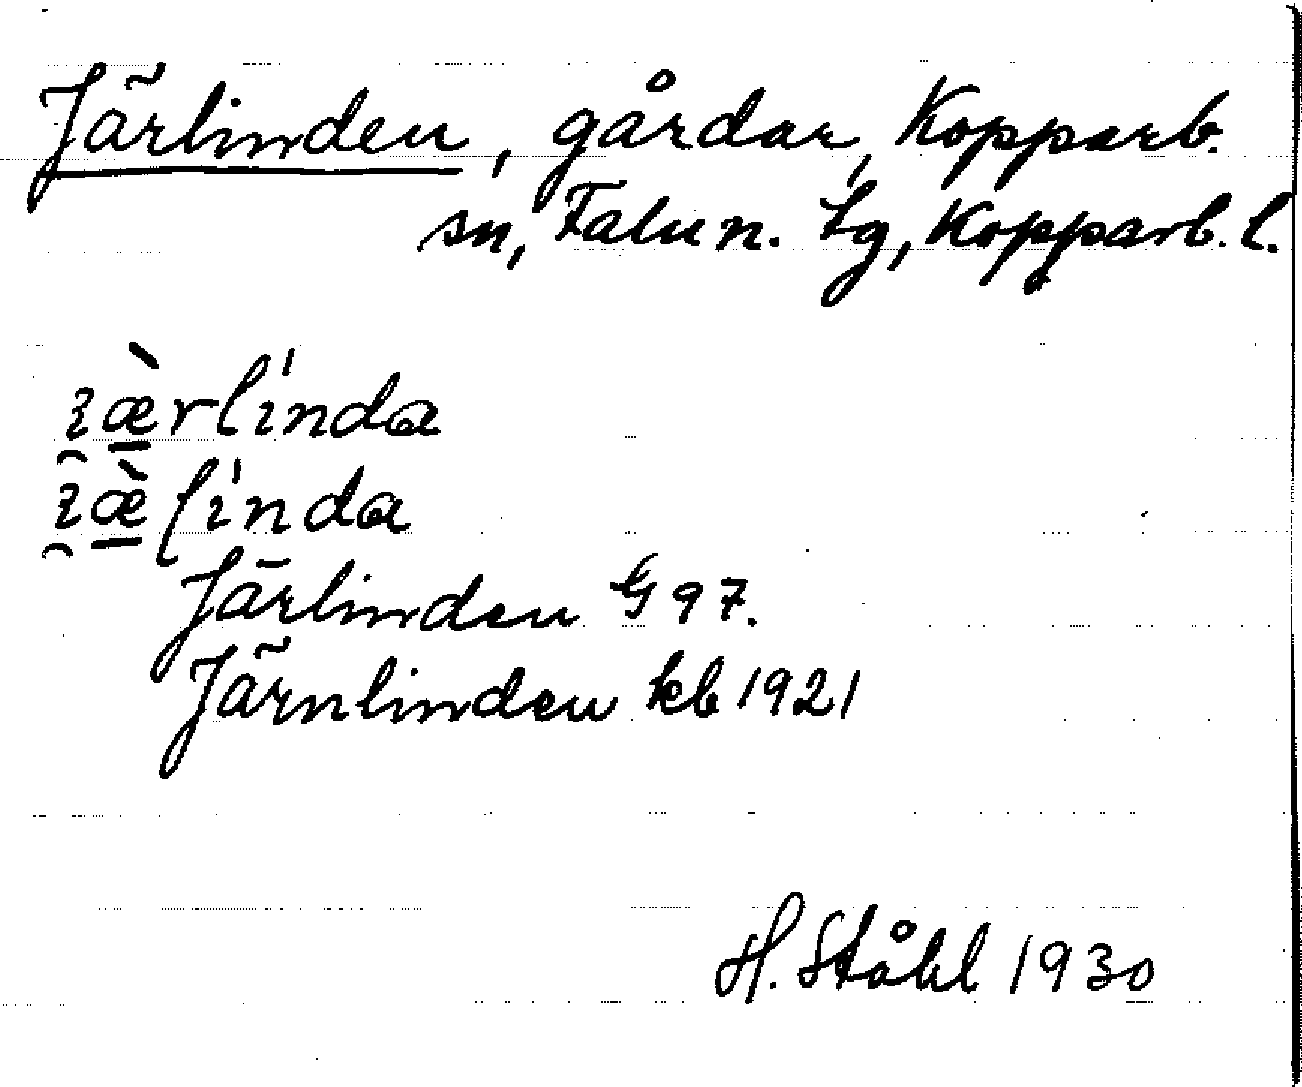 Järlinden, gårdar, Kopparb.
sn, Falu n. tg, Kopparb. l.
ı̯æ̀rlinda
ı̯æ̀ɭinda
Järlinden G 97.
Järnlinden kb 1921
H. Ståhl 1930